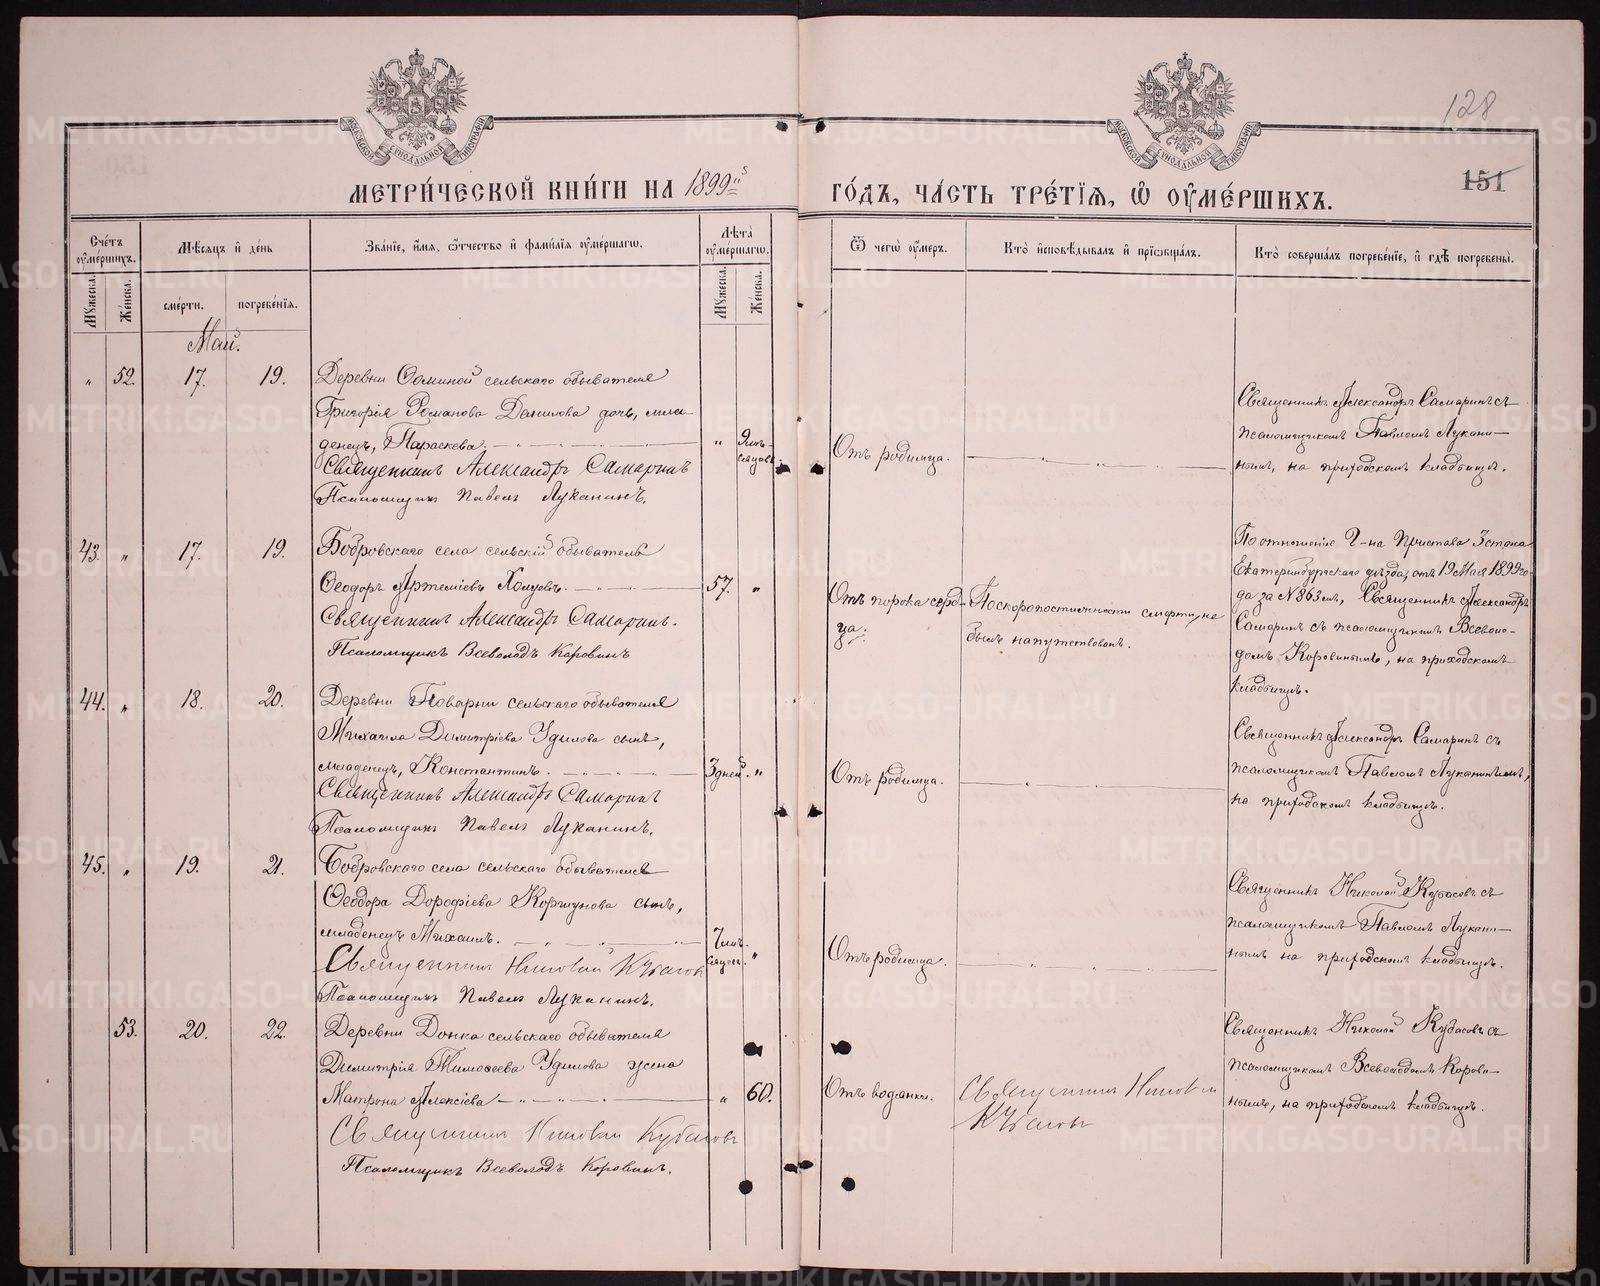 128
151
МЕТРИ́ЧЕСКОЙ КНИ́ГИ НА 1899й
ГО́ДЪ, ЧА́СТЬ ТРЕ́ТІѦ, Ѡ҆ ОУ҆МЕ́РШИХЪ.
Сче́тъ оу҆ме́ршихъ.
Мѣ́сяцъ и҆ де́нь
Зва́ніе, и҆́мя, ѻ҆́тчество и҆ фами́лія оу҆ме́ршагѡ.
Лѣ́та оу҆ме́ршагѡ.
Ѿ чегѡ̀ оу҆́меръ.
Кто̀ и҆сповѣ́дывалъ и҆ прїѡбща́лъ.
Кто̀ соверша́лъ погребе́ніе, и҆ гдѣ̀ погребены̀.
Му́жеска.
Же́нска.
сме́рти.
погребе́нія.
Му́жеска.
Же́нска.
Май.
„ 52. 17. 19.
Деревни Ѳоминой сельскаго обывателя
Григорія Романова Данилова дочь, мла-
денецъ, Параскева.
Священникъ Александръ Самаринъ
Псаломщикъ Павелъ Луканинъ.
„ 9 мѣ-
сяцовъ
Отъ родимца.
Священникъ Александръ Самаринъ съ
псаломщикомъ Павломъ Лукани-
нымъ, на приходскомъ кладбищѣ.
43. „ 17. 19.
Бобровскаго села сельскій обыватель
Ѳеодоръ Артеміевъ Холуевъ.
Священникъ Александръ Самаринъ.
Псаломщикъ Всеволодъ Коровинъ
57. „
Отъ порока серд-
ца.
По скоропостижности смерти, не
былъ напутствованъ.
По отношенію Г-на Пристава 3 стана
Екатеринбургскаго уѣзда, отъ 19 Мая 1899 го-
да за № 863мъ, Священникъ Александръ
Самаринъ съ псаломщикомъ Всеволо-
домъ Коровинымъ, на приходскомъ
кладбищѣ.
44. „ 18. 20.
Деревни Поварни сельскаго обывателя
Михаила Димитріева Удилова сынъ,
младенецъ, Константинъ.
Священникъ Александръ Самаринъ
Псаломщикъ Павелъ Луканинъ.
3 дней. „
Отъ родимца.
Священникъ Александръ Самаринъ съ
псаломщикомъ Павломъ Луканинымъ,
на приходскомъ кладбищѣ.
45. „ 19. 21.
Бобровскаго села сельскаго обывателя
Ѳеодора Дорофіева Коршунова сынъ,
младенецъ Михаилъ.
Священникъ Николай Кубасовъ
Псаломщикъ Павелъ Луканинъ.
7 мѣ-
сяцевъ „
Отъ родимца.
Священникъ Николай Кубасовъ съ
псаломщикомъ Павломъ Лукани-
нымъ на приходскомъ кладбищѣ.
53. 20. 22.
Деревни Донка сельскаго обывателя
Димитрія Тимоѳеева Удилова жена
Матрона Алексіева
Священникъ Николай Кубасовъ
Псаломщикъ Всеволодъ Коровинъ.
„ 60.
Отъ водянки.
Священникъ Николай
Кубасовъ
Священникъ Николай Кубасовъ съ
псаломщикомъ Всеволодомъ Корови-
нымъ, на приходскомъ кладбищѣ.
METRIKI.GASO-URAL.RU